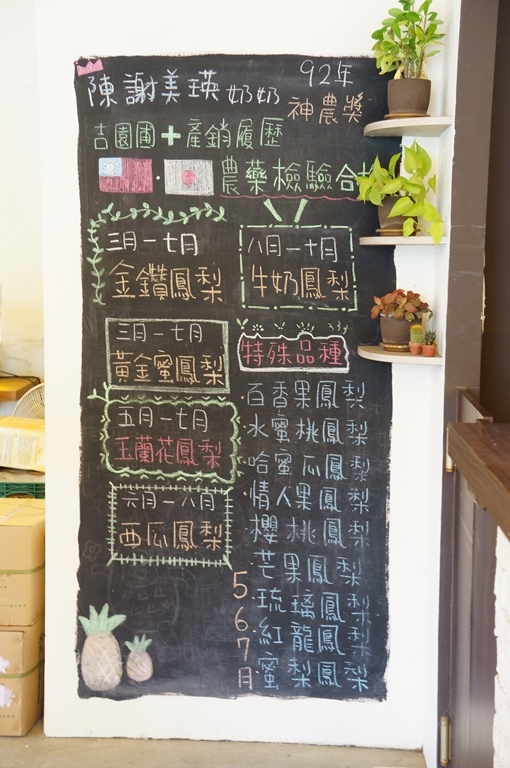 陳謝美瑛奶奶
92年
神農獎
吉園圃+產銷履歷
農藥檢驗合
三月-七月
金鑽鳳梨
八月-十月
牛奶鳳梨
三月-七月
黃金蜜鳳梨
五月-七月
玉蘭花鳳梨
六月-八月
西瓜鳳梨
特殊品種
百香果鳳梨
水蜜桃鳳梨
哈蜜瓜鳳梨
情人果鳳梨
櫻桃鳳梨
芒果鳳梨
琉璃鳳梨
紅龍鳳梨
蜜梨鳳梨
5.6.7月